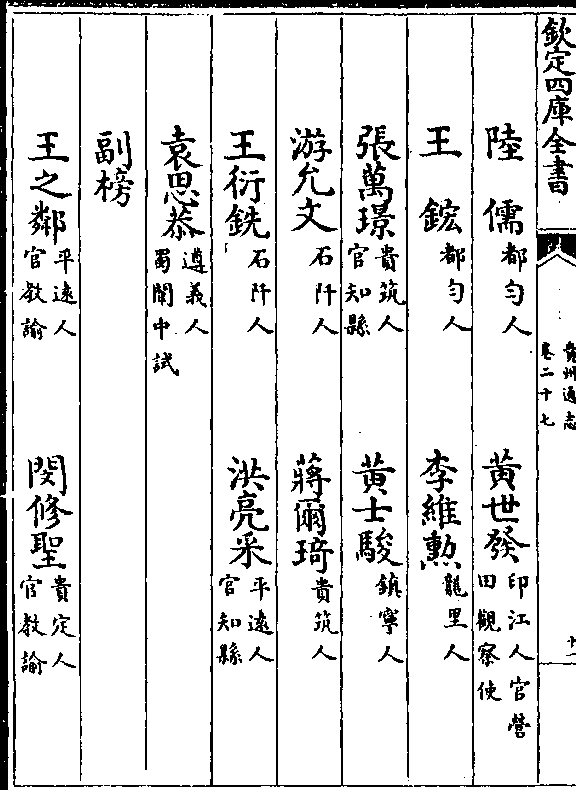 欽定四庫全書
貴州通志
卷二十七
陸儒 都勻人
黃世發 印江人官營田觀察使
王鋐 都勻人
李維勲 龍里人
張萬璟 貴筑人官知縣
黃士駿 鎮寧人
游允文 石阡人
蔣爾琦 貴筑人
王衍銑 石阡人
洪亮采 平遠人官知縣
袁思恭 遵義人蜀闈中試
副榜
王之鄰 平遠人官教諭
閔修聖 貴定人官教諭